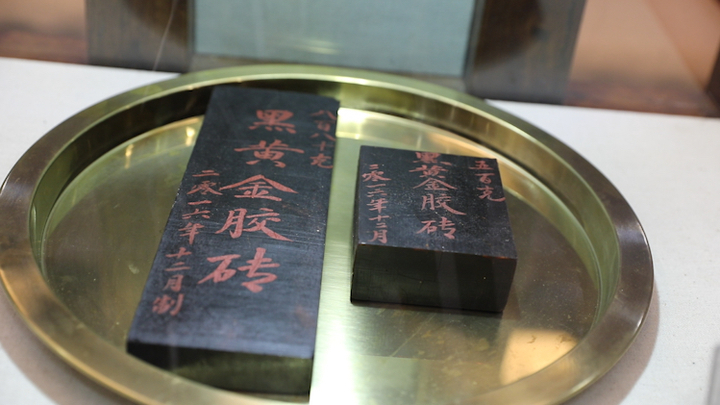 八百八十克
黑黄金胶砖
二零一六年十二月制
五百克
黑黄金胶砖
年十二月